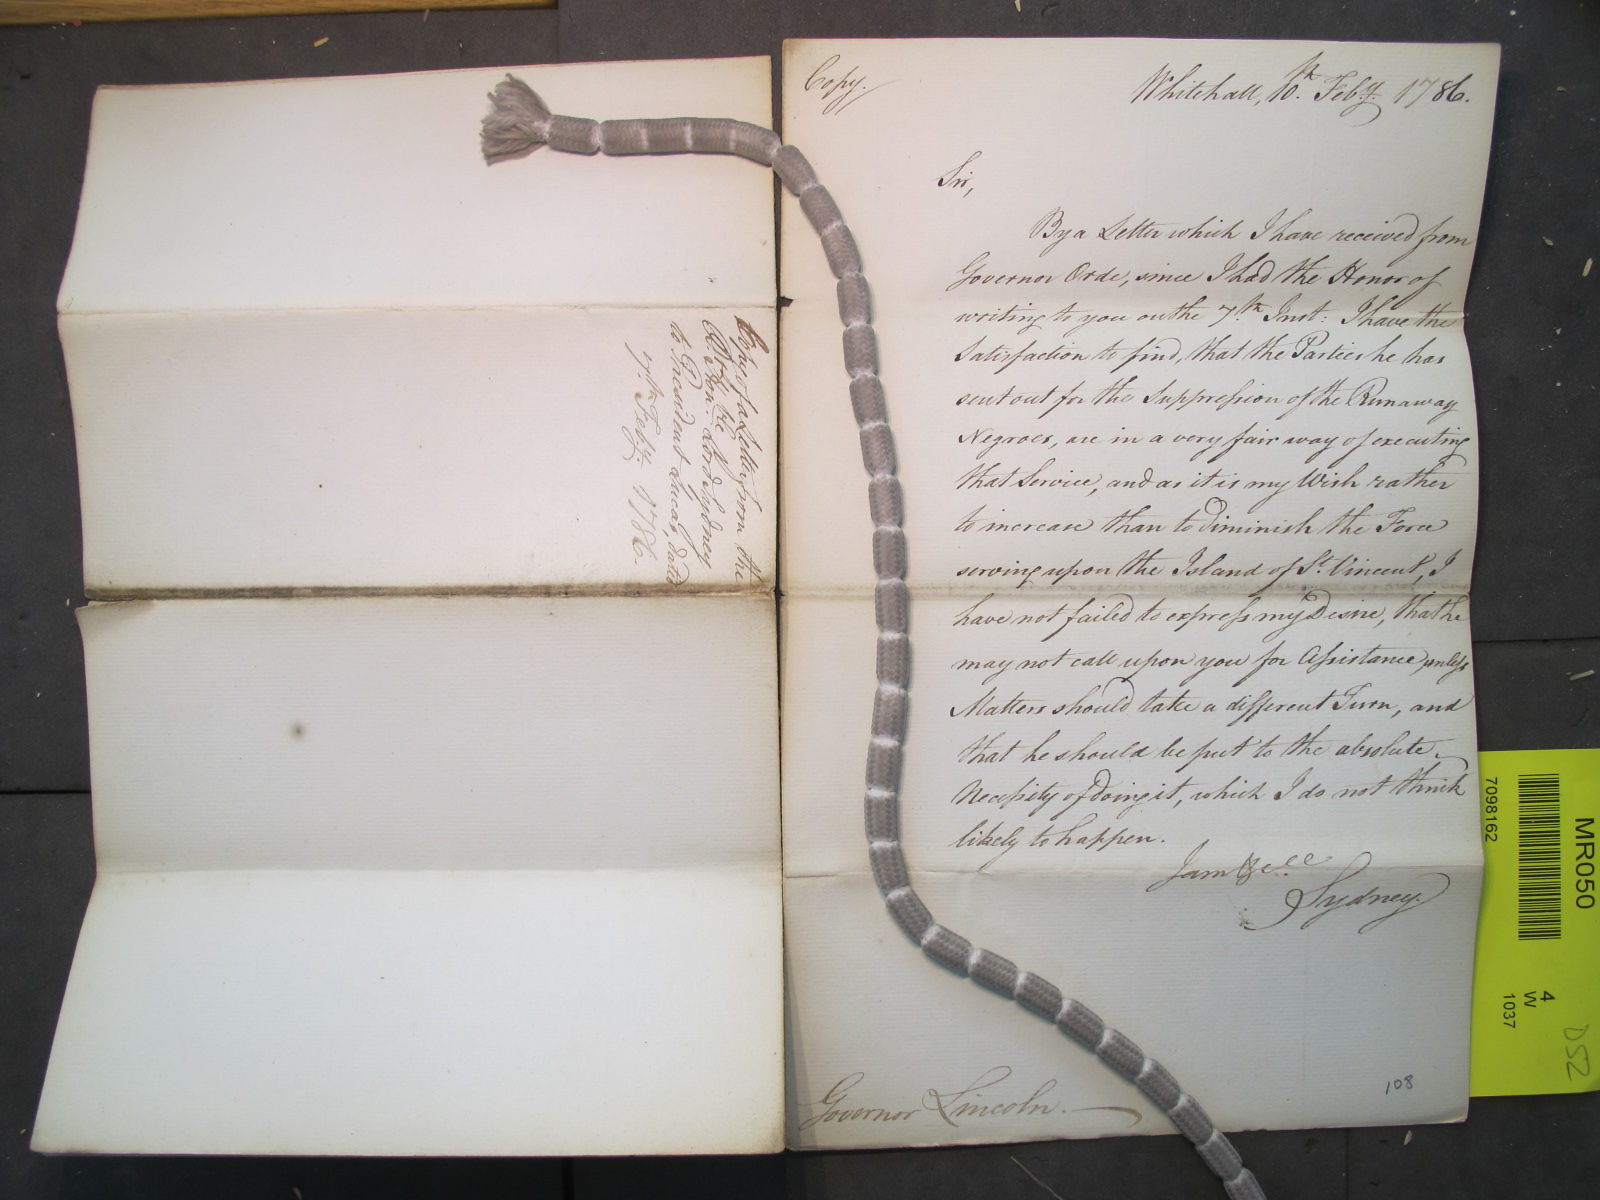 Copy of a Letter from the
Rt. Hon'ble Lord Sydney
to President Lucas, dated
7th Feby. 1786.
Copy.
Whitehall, 10th. Feby. 1786.
Sir,
By a Letter which I have received from
Governor Orde, since I had the Honor of
writing to you on the 7th Inst: I have the
Satisfaction to find, that the Parties he has
sent out for the Suppression of the Runaway
Negroes, are in a very fair way of executing
that Service, and as it is my Wish rather
to increase than to diminish the Force
serving upon the Island of St. Vincent, I
have not failed to express my Desire, that he
may not call upon you for Assistance, unless
Matters should take a different Turn, and
that he should be put to the absolute
Necessity of doing it, which I do not think
likely to happen.
I am &c.
Sydney.
Governor Lincoln.
108
7098162
MR050
4
W
1037
D52